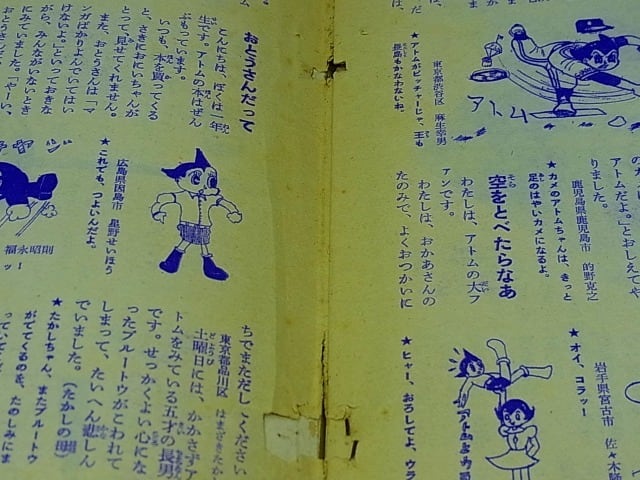 アトム
★アトムがピッチャーじゃ、王も
長島もかなわないね。
東京都渋谷区 麻生幸男
おとうさんだって
こんにちは、ぼくは一年
生です。アトムの本はぜん
ぶもっています。
いつも、本を買ってくる
と、さきにおにいちゃんが
とって、見せてくれません。
また、おとうさんは「マ
ンガばかりよんでいてはい
けないよ。」といっておきな
がら、みんながいないとき
にみていました。「やーい、
りました。
アトムだよ。」とおしえてや
鹿児島県鹿児島市 的野克之
★カメのアトムちゃんは、きっと
足のはやいカメになるよ。
空をとべたらなあ
わたしは、アトムの大フ
アンです。
わたしは、おかあさんの
たのみで、よくおつかいに
広島県因島市 星野せいほう
★これでも、つよいんだよ。
福永昭則
ッー
岩手県宮古市 佐々木
★オイ、コラッー
★ヒャー、おろしてよ、ウラ
ちでまただしてください
東京都品川区 はまざきたか
土曜日には、かかさずア
トムをみている五才の長男
です。せっかくよい心にな
ったプルートウがこわれて
しまって、たいへん悲しん
でいました。(たかしの母)
★たかしちゃん、またプルートウ
がでてくるのを、たのしみにま
っていて